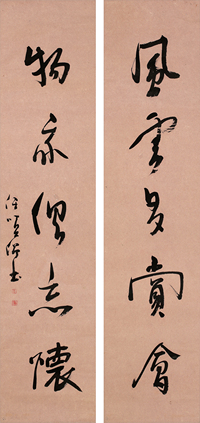 風雲多賞會
物我俱忘懷